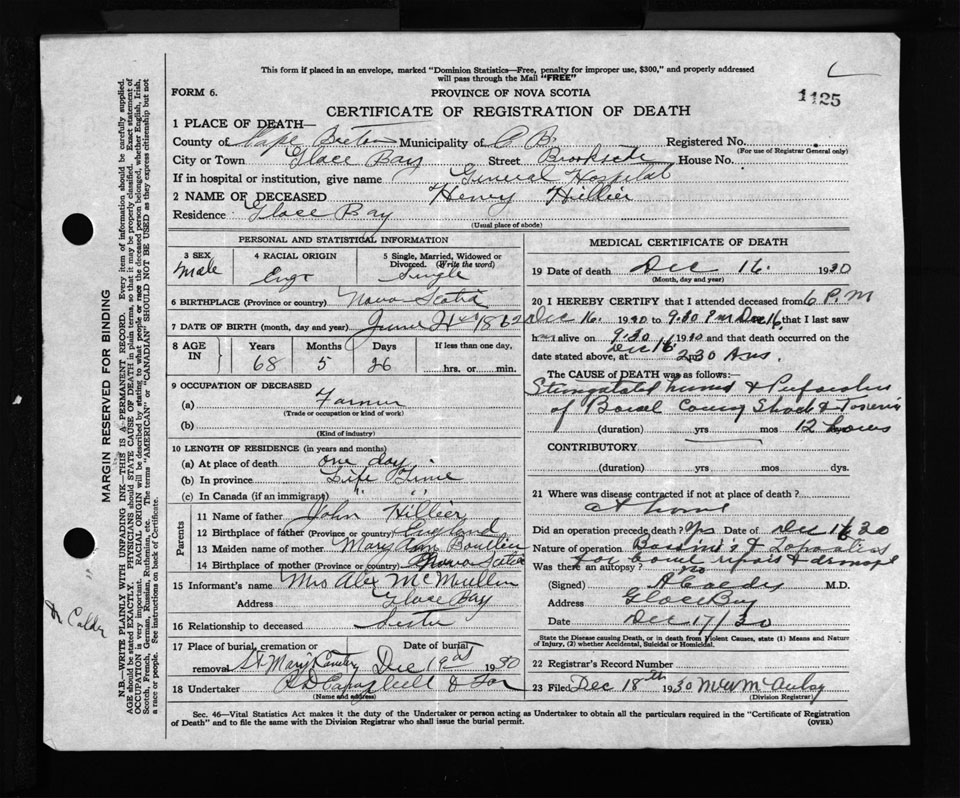 This form if placed in an envelope, marked "Dominion Statistics—Free, penalty for improper use, $300," and properly addressed
will pass through the Mail "FREE"
FORM 6.
PROVINCE OF NOVA SCOTIA
1125
CERTIFICATE OF REGISTRATION OF DEATH
1 PLACE OF DEATH—
County of Cape Breton Municipality of C B. Registered No.
(For use of Registrar General only)
City or Town Glace Bay Street Brookside House No.
If in hospital or institution, give name General Hospital
2 NAME OF DECEASED Henry Hillier
Residence Glace Bay
(Usual place of abode)
PERSONAL AND STATISTICAL INFORMATION
3 SEX
male
4 RACIAL ORIGIN
Eng.
5 Single, Married, Widowed or
Divorced. (Write the word)
Single
6 BIRTHPLACE (Province or country) Nova Scotia
7 DATE OF BIRTH (month, day and year) June 1862
8 AGE IN
Years Months Days If less than one day,
68 5 26 hrs. or min.
9 OCCUPATION OF DECEASED
(a) Farmer
(Trade or occupation or kind of work)
(b)
(Kind of industry)
10 LENGTH OF RESIDENCE (in years and months)
(a) At place of death one day
(b) In province Life Time
(c) In Canada (if an immigrant) " "
Parents
11 Name of father John Hillier
12 Birthplace of father (Province or country) England
13 Maiden name of mother Mary Ann
14 Birthplace of mother (Province or country) Nova Scotia
15 Informant's name Mrs Alex McMullin
Address Glace Bay
16 Relationship to deceased Sister
17 Place of burial, cremation or removal St Mary's Cemetery
Date of burial Dec 19 1930
18 Undertaker Campbell & Son
(Name and address)
MEDICAL CERTIFICATE OF DEATH
19 Date of death Dec 16. 1930
(Month, day and year)
20 I HEREBY CERTIFY that I attended deceased from 6 P.M
Dec 16. 1930 to 9.30 PM Dec 16, that I last saw
h alive on 9.30 Dec 16 1930 and that death occurred on the
date stated above, at
The CAUSE of DEATH was as follows:—
Strangulated hernia & Perforation
of Bowel causing Shock & Toxemia
(duration) yrs mos 12 hours
CONTRIBUTORY
(duration) yrs. mos. dys.
21 Where was disease contracted if not at place of death?
at home
Did an operation precede death? Yes Date of Dec 16 30
Nature of operation Bassini's &
for bowel repair & drainage
Was there an autopsy? no
(Signed) A Calder M.D.
Address Glace Bay
Date Dec 17/30
State the Disease causing Death, or in death from Violent Causes, state (1) Means and Nature
of Injury, (2) whether Accidental, Suicidal or Homicidal.
22 Registrar's Record Number
23 Filed Dec 18th 1930
(Division Registrar)
Sec. 46—Vital Statistics Act makes it the duty of the Undertaker or person acting as Undertaker to obtain all the particulars required in the "Certificate of Registration
of Death" and to file the same with the Division Registrar who shall issue the burial permit.
(OVER)
MARGIN RESERVED FOR BINDING
N.B.—WRITE PLAINLY WITH UNFADING INK—THIS IS A PERMANENT RECORD. Every item of information should be carefully supplied.
AGE should be stated EXACTLY. PHYSICIANS should STATE CAUSE OF DEATH in plain terms, so that it may be properly classified. Exact statement of
OCCUPATION is very important. RACIAL ORIGIN will be described by stating to what people or race the deceased person belonged, whether English, Irish,
Scotch, French, German, Russian, Ruthenian, etc. The terms "AMERICAN" or "CANADIAN" SHOULD NOT BE USED as they express citizenship but not
a race or people. See instructions on back of Certificate.
A Calder